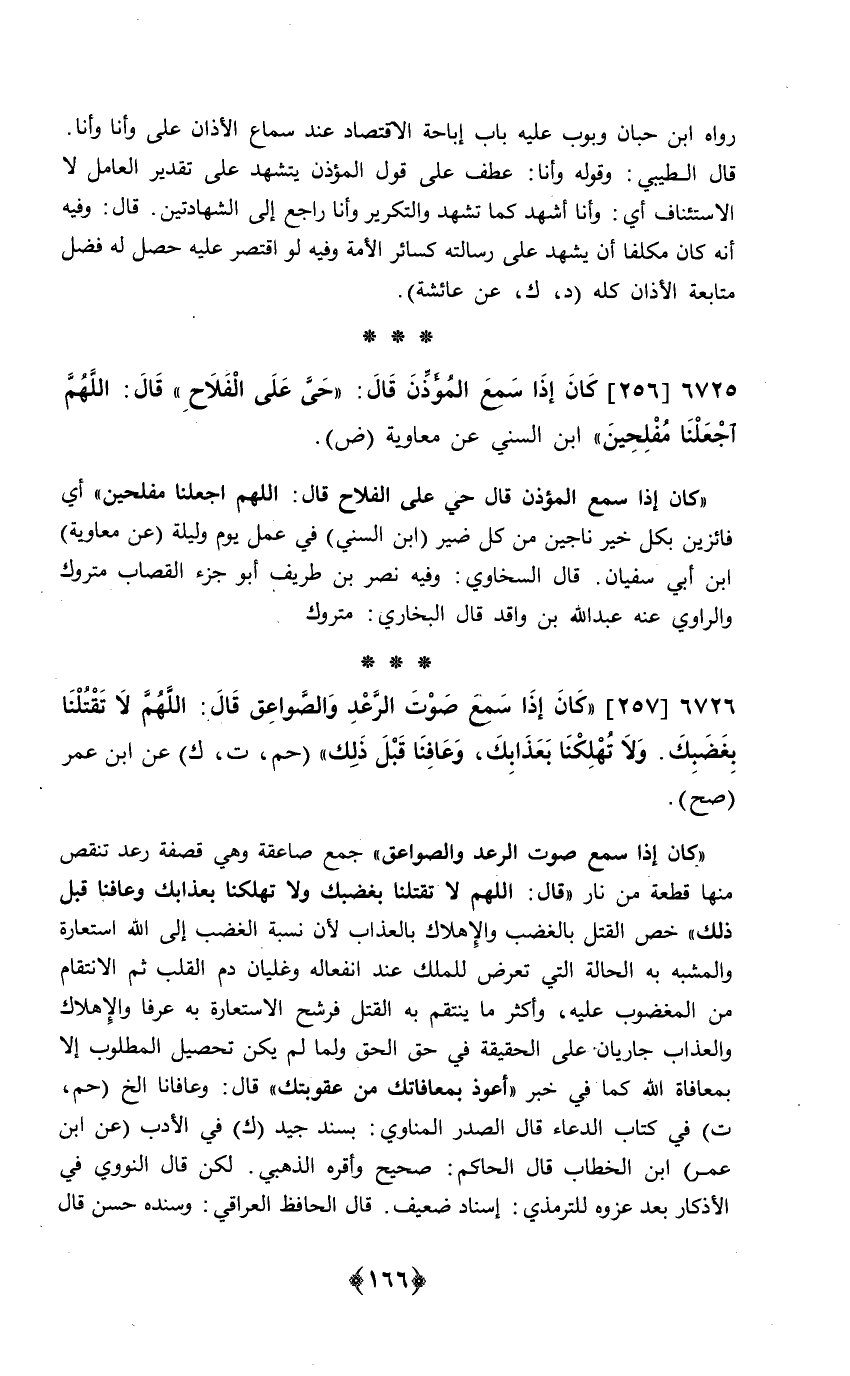 رواه ابن حبان وبوب عليه باب إباحة الاقتصاد عند سماع الأذان على وأنا وأنا.
قال الطيبي: وقوله وأنا: عطف على قول المؤذن يتشهد على تقدير العامل لا
الاستئناف أي: وأنا أشهد كما تشهد والتكرير وأنا راجع إلى الشهادتين. قال: وفيه
أنه كان مكلفا أن يشهد على رسالته كسائر الأمة وفيه لو اقتصر عليه حصل له فضل
متابعة الأذان كله (د، ك، عن عائشة).
* * *
٦٧٢٥ [٢٥٦] كَانَ إذَا سَمِعَ المُؤَذِّنَ قَالَ: «حَيَّ عَلَى الْفَلَاحِ» قَالَ: اللَّهُمَّ
ٱجْعَلْنَا مُفْلِحِينَ» ابن السني عن معاوية (ض).
«كان إذا سمع المؤذن قال حي على الفلاح قال: اللهم اجعلنا مفلحين» أي
فائزين بكل خير ناجين من كل ضير (ابن السني) في عمل يوم وليلة (عن معاوية)
ابن أبي سفيان. قال السخاوي: وفيه نصر بن طريف أبو جزء القصاب متروك
والراوي عنه عبدالله بن واقد قال البخاري: متروك
* * *
٦٧٢٦ [٢٥٧] «كَانَ إذَا سَمَعَ صَوْتَ الرَّعْدِ وَالصَّواعِقِ قَالَ: اللَّهُمَّ لَا تَقْتُلْنَا
بِغَضَبِكَ. وَلَا تُهْلِكْنَا بَعَذَابِكَ، وَعَافِنَا قَبْلَ ذَلِك» (حم، ت، ك) عن ابن عمر
(صح).
«كان إذا سمع صوت الرعد والصواعق» جمع صاعقة وهي قصفة رعد تنقص
منها قطعة من نار «قال: اللهم لا تقتلنا بغضبك ولا تهلكنا بعذابك وعافنا قبل
ذلك» خص القتل بالغضب والإهلاك بالعذاب لأن نسبة الغضب إلى الله استعارة
والمشبه به الحالة التي تعرض للملك عند انفعاله وغليان دم القلب ثم الانتقام
من المغضوب عليه، وأكثر ما ينتقم به القتل فرشح الاستعارة به عرفا والإهلاك
والعذاب جاريان على الحقيقة في حق الحق ولما لم يكن تحصيل المطلوب إلا
بمعافاة الله كما في خبر «أعوذ بمعافاتك من عقوبتك» قال: وعافانا الخ (حم،
ت) في كتاب الدعاء قال الصدر المناوي: بسند جيد (ك) في الأدب (عن ابن
عمر) ابن الخطاب قال الحاكم: صحيح وأقره الذهبي. لكن قال النووي في
الأذكار بعد عزوه للترمذي: إسناد ضعيف. قال الحافظ العراقي: وسنده حسن قال
﴿١٦٦﴾